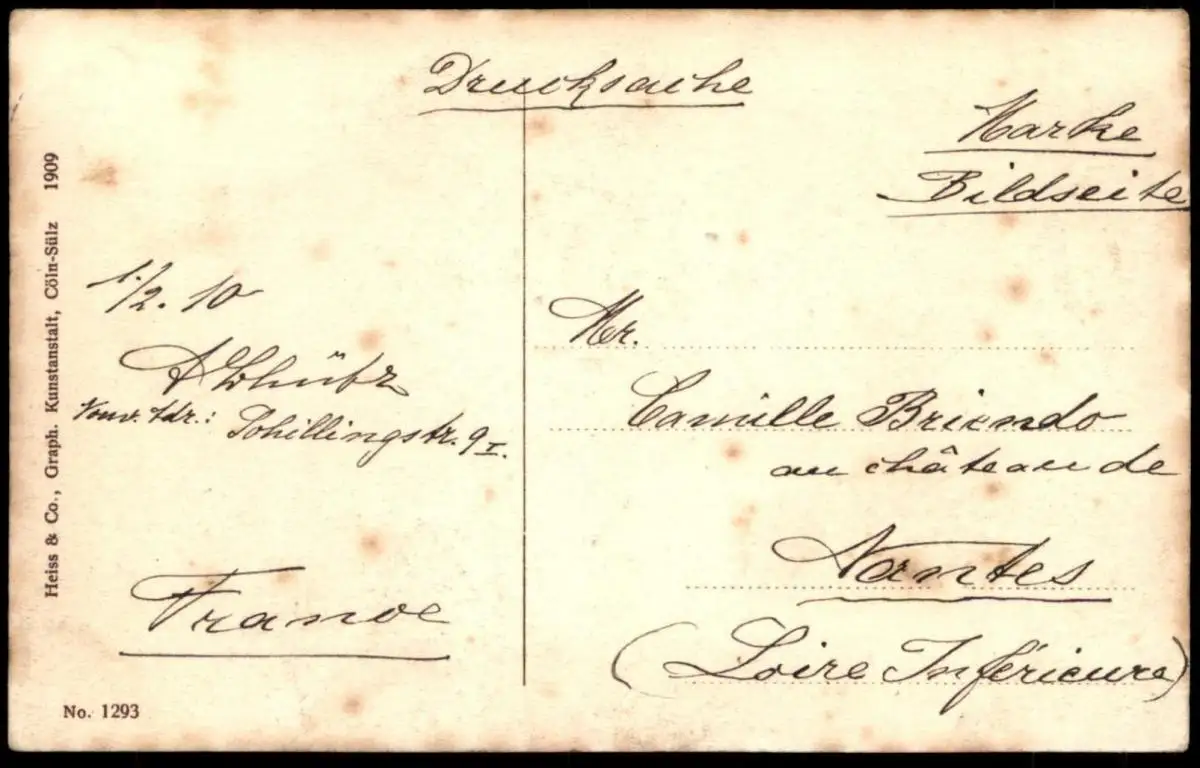 Drucksache
Marke
Bildseite
Heiss & Co., Graph. Kunstanstalt, Cöln-Sülz 1909
1./2. 10
A Schütz
Adr.: Schillingstr. 9 I.
France
No. 1293
Mr.
Camille Briendo
au château de
Nantes
(Loire Inférieure)